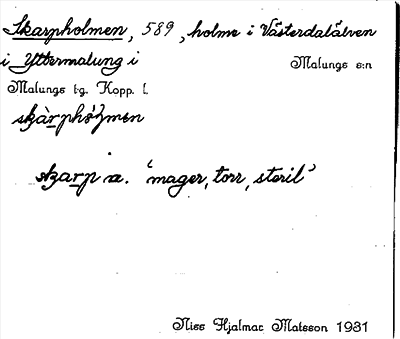 Skarpholmen, 589, holme i Västerdalälven
i Yttermalung i Malungs s:n
Malungs t:g. Kopp. l.
skàrphòlmen
skarp a. 'mager, torr, steril'
Nils Hjalmar Matsson 1931